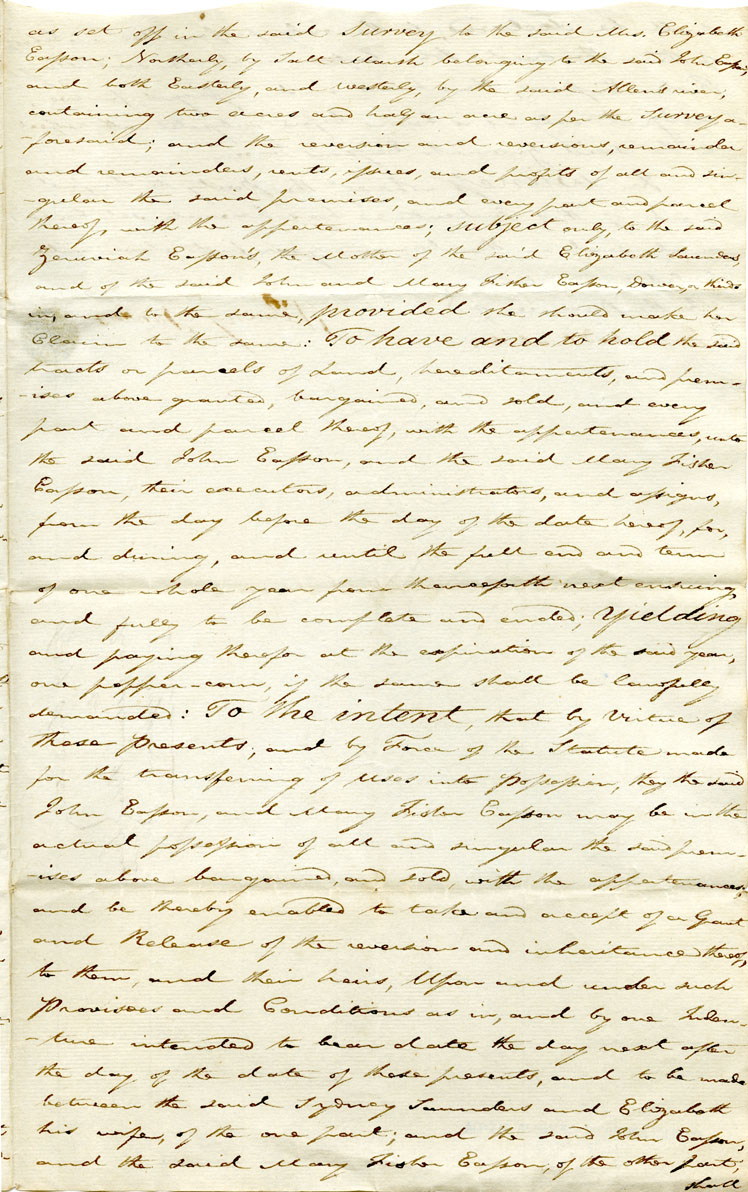 as set off in the said Survey to the said Mrs. Elizabeth
Easson; Northerly, by Salt Marsh belonging to the said John Easson
and both Easterly, and westerly, by the said Allen's river,
containing two acres and half an acre as per the Survey a-
-foresaid; and the reversion and reversions, remainder
and remainders, rents, issues, and profits of all and sin-
-gular the said premises, and every part and parcel
thereof, with the appertenances; subject only, to the said
Zeruiah Easson's, the Mother of the said Elizabeth Saunders,
and of the said John and Mary Fisher Easson, Dower, or thirds
in, and to the same, provided she should make her
Claim to the same: To have and to hold the said
tracts or parcels of Land, hereditaments, and prem-
-ises above granted, bargained, and sold, and every
part and parcel thereof, with the appertenances, unto
the said John Easson, and the said Mary Fisher
Easson, their executors, administrators, and assigns,
from the day before the day of the date hereof, for,
and during, and until the full end and term
of one whole year from thenceforth next ensuing,
and fully to be complete and ended; Yielding
and paying therefor at the expiration of the said year,
one pepper-corn, if the same shall be lawfully
demanded: To the intent, that by Virtue of
these Presents, and by Force of the Statute made
for the transferring of Uses into Possession, they the said
John Easson, and Mary Fisher Easson may be in the
actual possession of all and singular the said prem-
-ises above bargained, and sold, with the appertenances,
and be thereby enabled to take and accept of a Grant
and Release of the reversion and inheritance thereof,
to them, and their heirs, Upon and under such
Provisoes and Conditions as in, and by one Inden-
-ture intended to bear date the day next after
the day of the date of these presents, and to be made
between the said Sydney Saunders and Elizabeth
his wife, of the one part; and the said John Easson,
and the said Mary Fisher Easson, of the other part,
shall